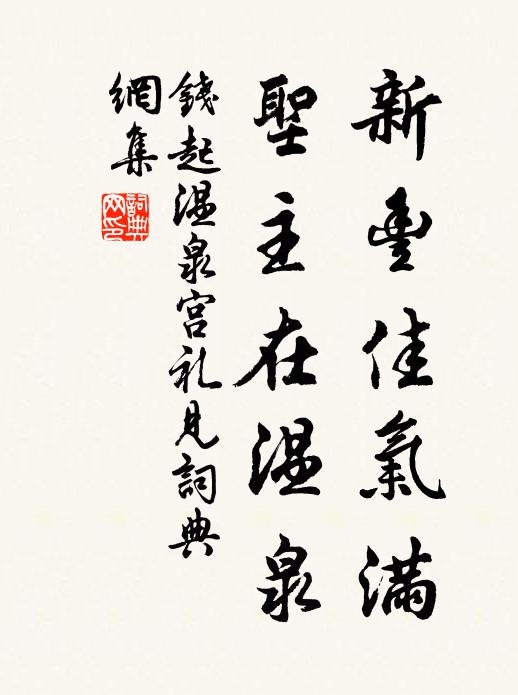 新豐佳氣滿
聖主在温泉
錢起温泉宮礼見詞典
網集
詞典
网印